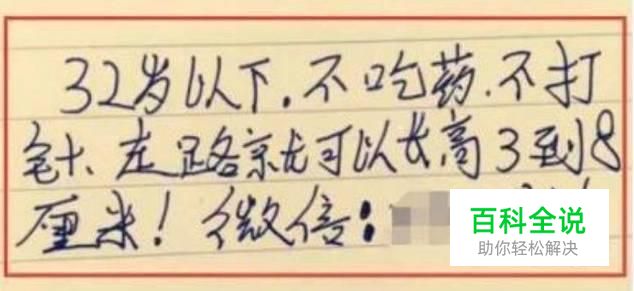 32岁以下.不吃药.不打
针、走路就可以长高3到8
厘米！微信：
百科全说
助你轻松解决